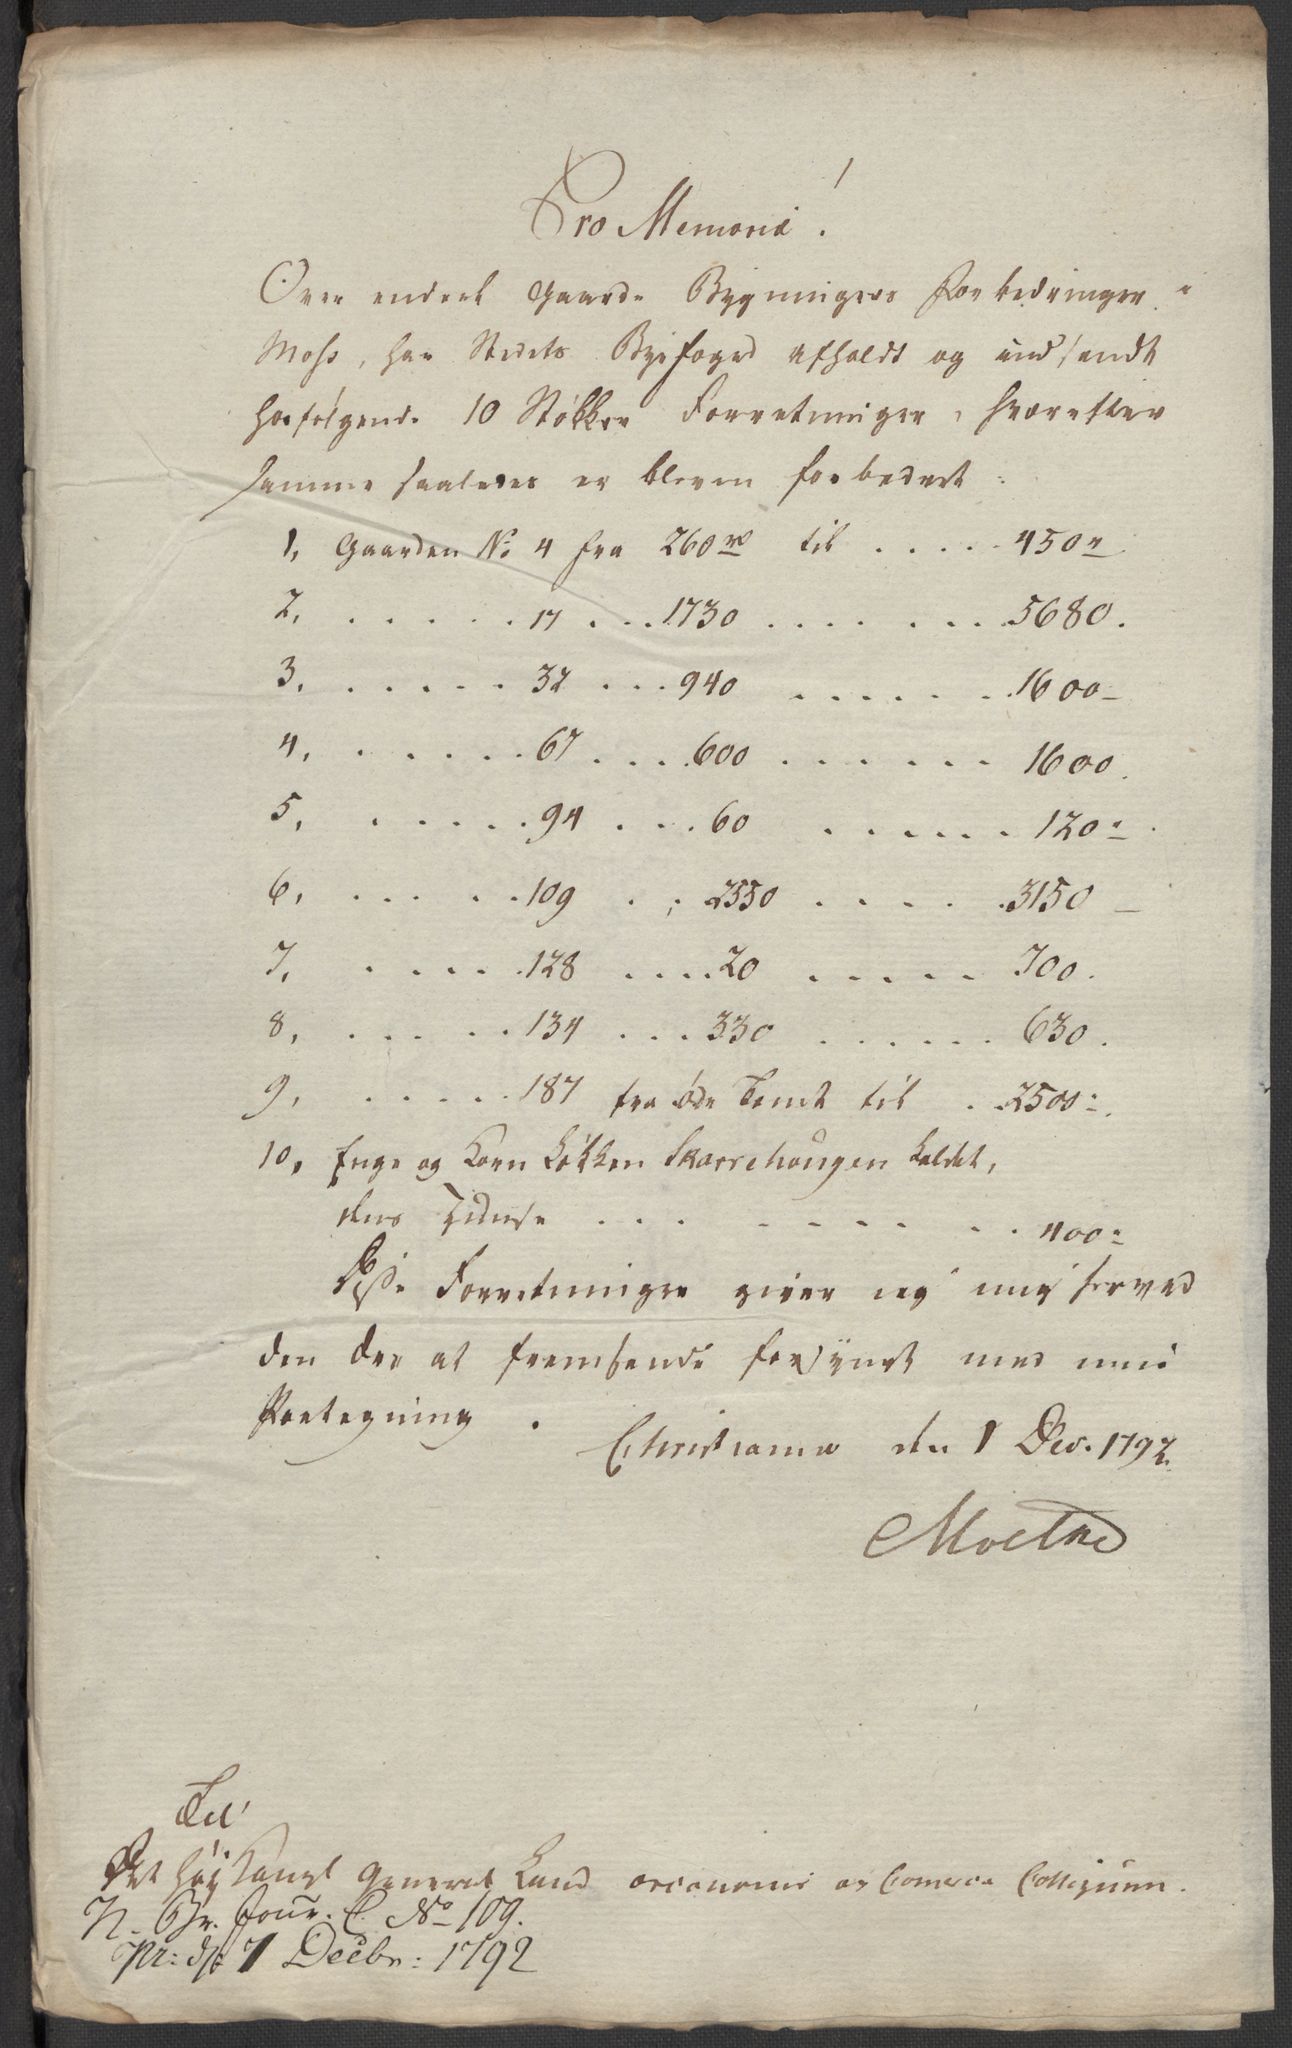 Pro Memoria!
Over endeel Gaarde Bygningers Forbedringer i
Moss, har Stedets Byefoged afholdt og indsendt
hosfølgende 10 Støkker Forretninger, hvorefter
samme saaledes er bleven forbedret:
1, Gaarden No 4 fra 260 rd til . . . . . 450 r
2, . . . . . . 17 . . . 1730 . . . . . . . . 5680.
3, . . . . . . 32 . . . 940 . . . . . . . 1600 –
4, . . . . . 67 . . . . 600 . . . . . . 1600.
5, . . . . . . 94 . . . . 60 . . . . . . 120 "
6, . . . . . . 109 . . 2550 . . . . . . 3150 –
7, . . . . . 128 . . . . 20 . . . . . 700.
8, . . . . . . 134 . . . 330 . . . . . . 630.
9, . . . . . . 187 fra øde Tomt til . . 2500 :
10, Enge og Korn Løkken Skarrehougen kaldet,
dens . . . . . . . . . . 400 "
Disse Forretninger giver ieg mig herved
den Ære at fremsende forsÿnet med min
Paategning.
Christiania den 1 Dec. 1792.
Moltke
Til
Det høÿ General Land oeconomie og Comerce Collegium.
N. Br. Jour. C. No 109.
Pr: d: 7 Decbr: 1792